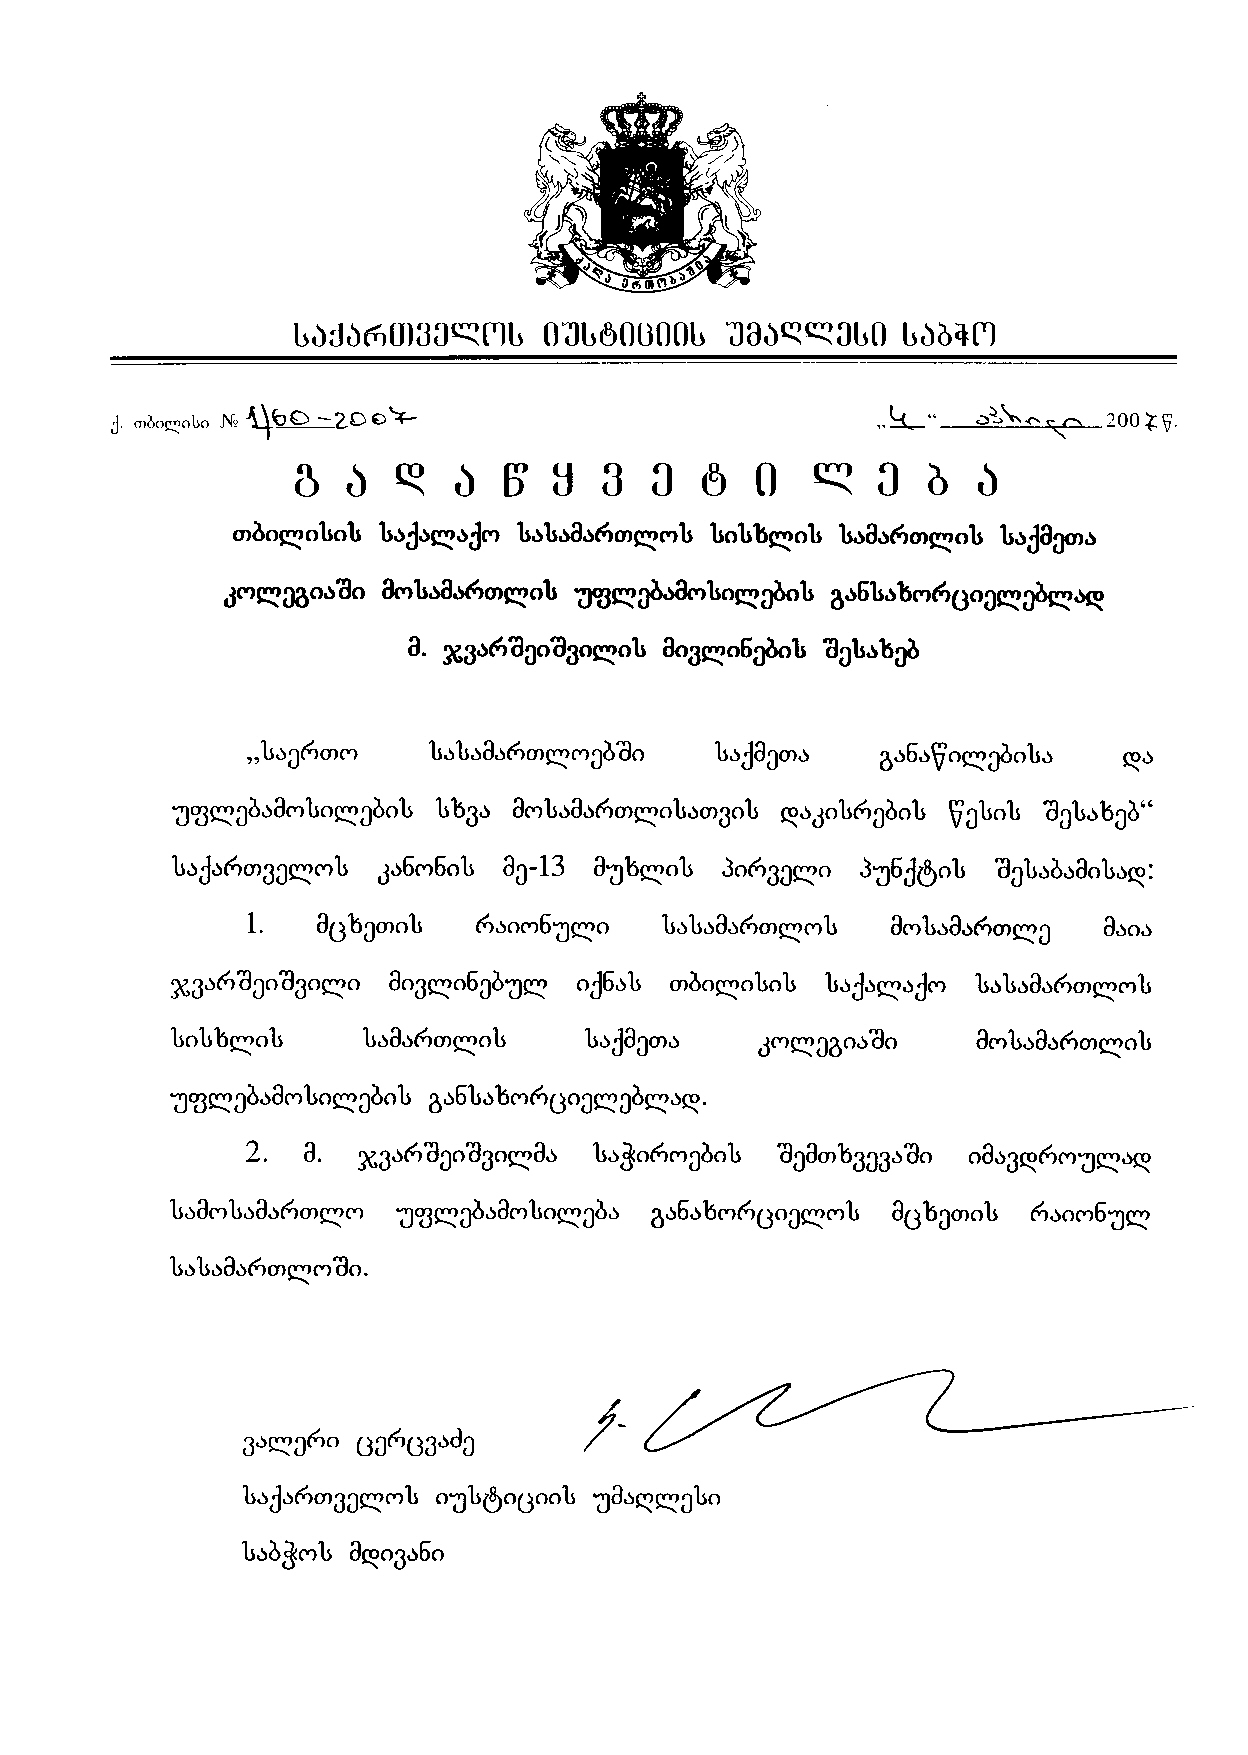 ძალა ერთობაშია
საქართველოს იუსტიციის უმაღლესი საბჭო
ქ. თბილისი № 1/60-2007 „4“ აპრილი 2007წ.
გ ა დ ა წ ყ ვ ე ტ ი ლ ე ბ ა
თბილისის საქალაქო სასამართლოს სისხლის სამართლის საქმეთა
კოლეგიაში მოსამართლის უფლებამოსილების განსახორციელებლად
მ. ჯვარშეიშვილის მივლინების შესახებ
„საერთო სასამართლოებში საქმეთა განაწილებისა და
უფლებამოსილების სხვა მოსამართლისათვის დაკისრების წესის შესახებ“
საქართველოს კანონის მე-13 მუხლის პირველი პუნქტის შესაბამისად:
1. მცხეთის რაიონული სასამართლოს მოსამართლე მაია
ჯვარშეიშვილი მივლინებულ იქნას თბილისის საქალაქო სასამართლოს
სისხლის სამართლის საქმეთა კოლეგიაში მოსამართლის
უფლებამოსილების განსახორციელებლად.
2. მ. ჯვარშეიშვილმა საჭიროების შემთხვევაში იმავდროულად
სამოსამართლო უფლებამოსილება განახორციელოს მცხეთის რაიონულ
სასამართლოში.
ვალერი ცერცვაძე
საქართველოს იუსტიციის უმაღლესი
საბჭოს მდივანი